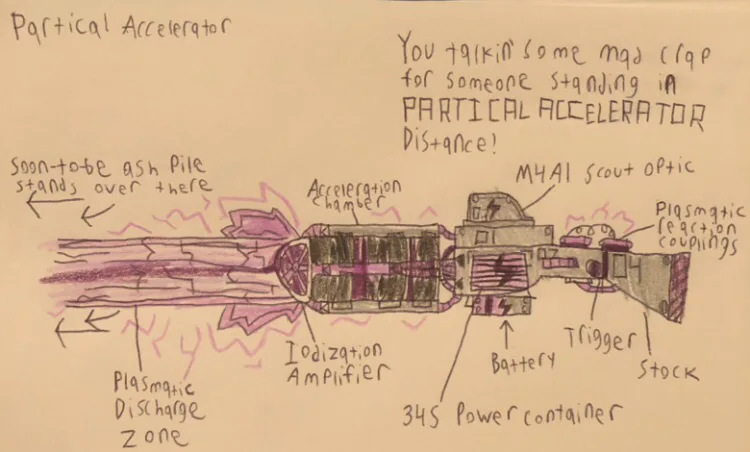 Partical Accelerator
You talkin' some mad crap
for someone standing in
PARTICAL ACCELERATOR
Distance!
Soon-to-be ash pile
stands over there
Acceleration
chamber
M4A1 scout optic
Plasmatic
reaction
couplings
Iodization
Amplifier
Battery
Trigger
Stock
Plasmatic
Discharge
Zone
34S Power container